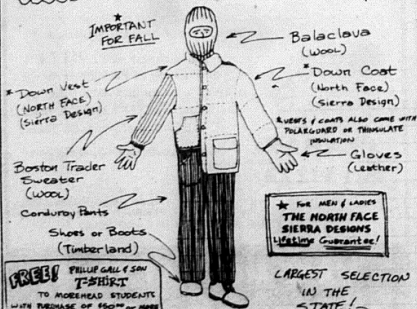 ★
IMPORTANT
FOR FALL
Balaclava
(WOOL)
*Down Vest
(NORTH FACE)
(Sierra Design)
*Down Coat
(North Face)
(Sierra Design)
*VESTS & COATS ALSO COME WITH
POLARGUARD OR THINSULATE
INSULATION
Gloves
(Leather)
Boston Trader
Sweater
(WOOL)
Corduroy Pants
Shoes or Boots
(Timberland)
★ FOR MEN & LADIES
THE NORTH FACE
SIERRA DESIGNS
Lifetime Guarantee!
FREE! PHILLIP GALL & SON
T-SHIRT
TO MOREHEAD STUDENTS
WITH PURCHASE OF $50.00 OR MORE
LARGEST SELECTION
IN THE
STATE!